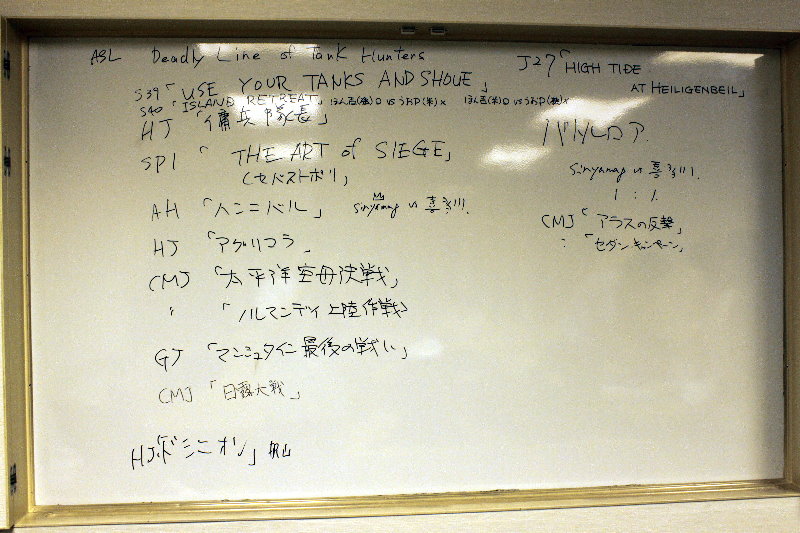 ASL Deadly Line of Tank Hunters
S39「USE YOUR TANKS AND SHOVE」
S40「ISLAND RETREAT」
HJ「傭兵隊長」
SP1「THE ART of SIEGE」
(セバストポリ)
AH「ハンニバル」 Sinyapap vs
HJ「アグリコラ」
CMJ「太平洋空母決戦」
〃「ノルマンディ上陸作戦」
GJ「マンシュタイン最後の戦い」
CMJ「日露大戦」
HJ「ドミニオン」
J27「HIGH TIDE
AT HEILIGENBEIL」
バトルロア
vs
1 : 1.
CMJ「アラスの反撃」
:「セダンキャンペーン」